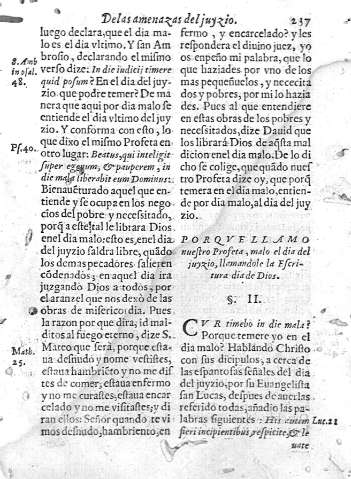 De las amenazas del juyzio. 237
luego declara, que el dia ma-
lo es el dia vltimo. Y san Am
brosio, declarando el mismo
verso dize: In die iudicii timere
quid possum? En el dia del juy-
zio que podre temer? De ma
nera que aqui por dia malo se
entiende el dia vltimo del juy
zio. Y conforma con esto, lo
que dixo el mismo Profeta en
otro lugar: Beatus, qui inteligit
super egenum, & pauperem, in
die mala liberabit eum Dominus:
Bienauēturado aquel que en-
tiende y se ocupa en los nego-
cios del pobre y necessitado,
porq̃ a este tal le librara Dios
en el dia malo: esto es, en el dia
del juyzio saldra libre, quādo
los demas pecadores salieren
cōdenados; en aquel dia ira
juzgando Dios a todos, por
el aranzel que nos dexò de las
obras de misericordia. Pues
la razon por que dira, id mal-
ditos al fuego eterno, dize S.
Mateo que serà, porque estaua
desnudo y nome vestistes,
estaua hambriēto y no me dis
tes de comer; estaua enfermo
y no me curastes; estaua encar
celado y no me visitastes; y di
ran ellos: Señor quando te vi
mos desnudo, hambriento, en
8. Amb
in psal.
48.
Psf. 40.
Math.
25.
fermo, y encarcelado? y les
respondera el diuino juez, yo
os enpeño mi palabra, que lo
que haziades por vno de los
mas pequeñuelos, y necesita
dos y pobres, por mi lo hazia
des. Pues al que entendiere
en estas obras de los pobres y
necessitados, dize Dauid que
los librarà Dios de aq̃sta mal
dicion en el dia malo. De lo di
cho se colige, que quādo nues
tro Profeta dize oy, que porq̃
temera en el dia malo, entien-
de por dia malo, al dia del juy
zio.
PORQVE LLAMO
nuestro Profeta, malo el dia del
juyzio, llamandole la Escri-
tura dia de Dios.
§. II.
CVR timebo in die mala?
Porque temere yo en el
dia malo? Hablādo Christo
con sus dicipulos, a cerca de
las espantosas señales del dia
del juyzio, por su Euangelista
san Lucas, despues de auerlas
referido todas, añadio las pa-
labras siguientes: His autem
fieri incipientibus, respicite, & le
uate
Luc. 21